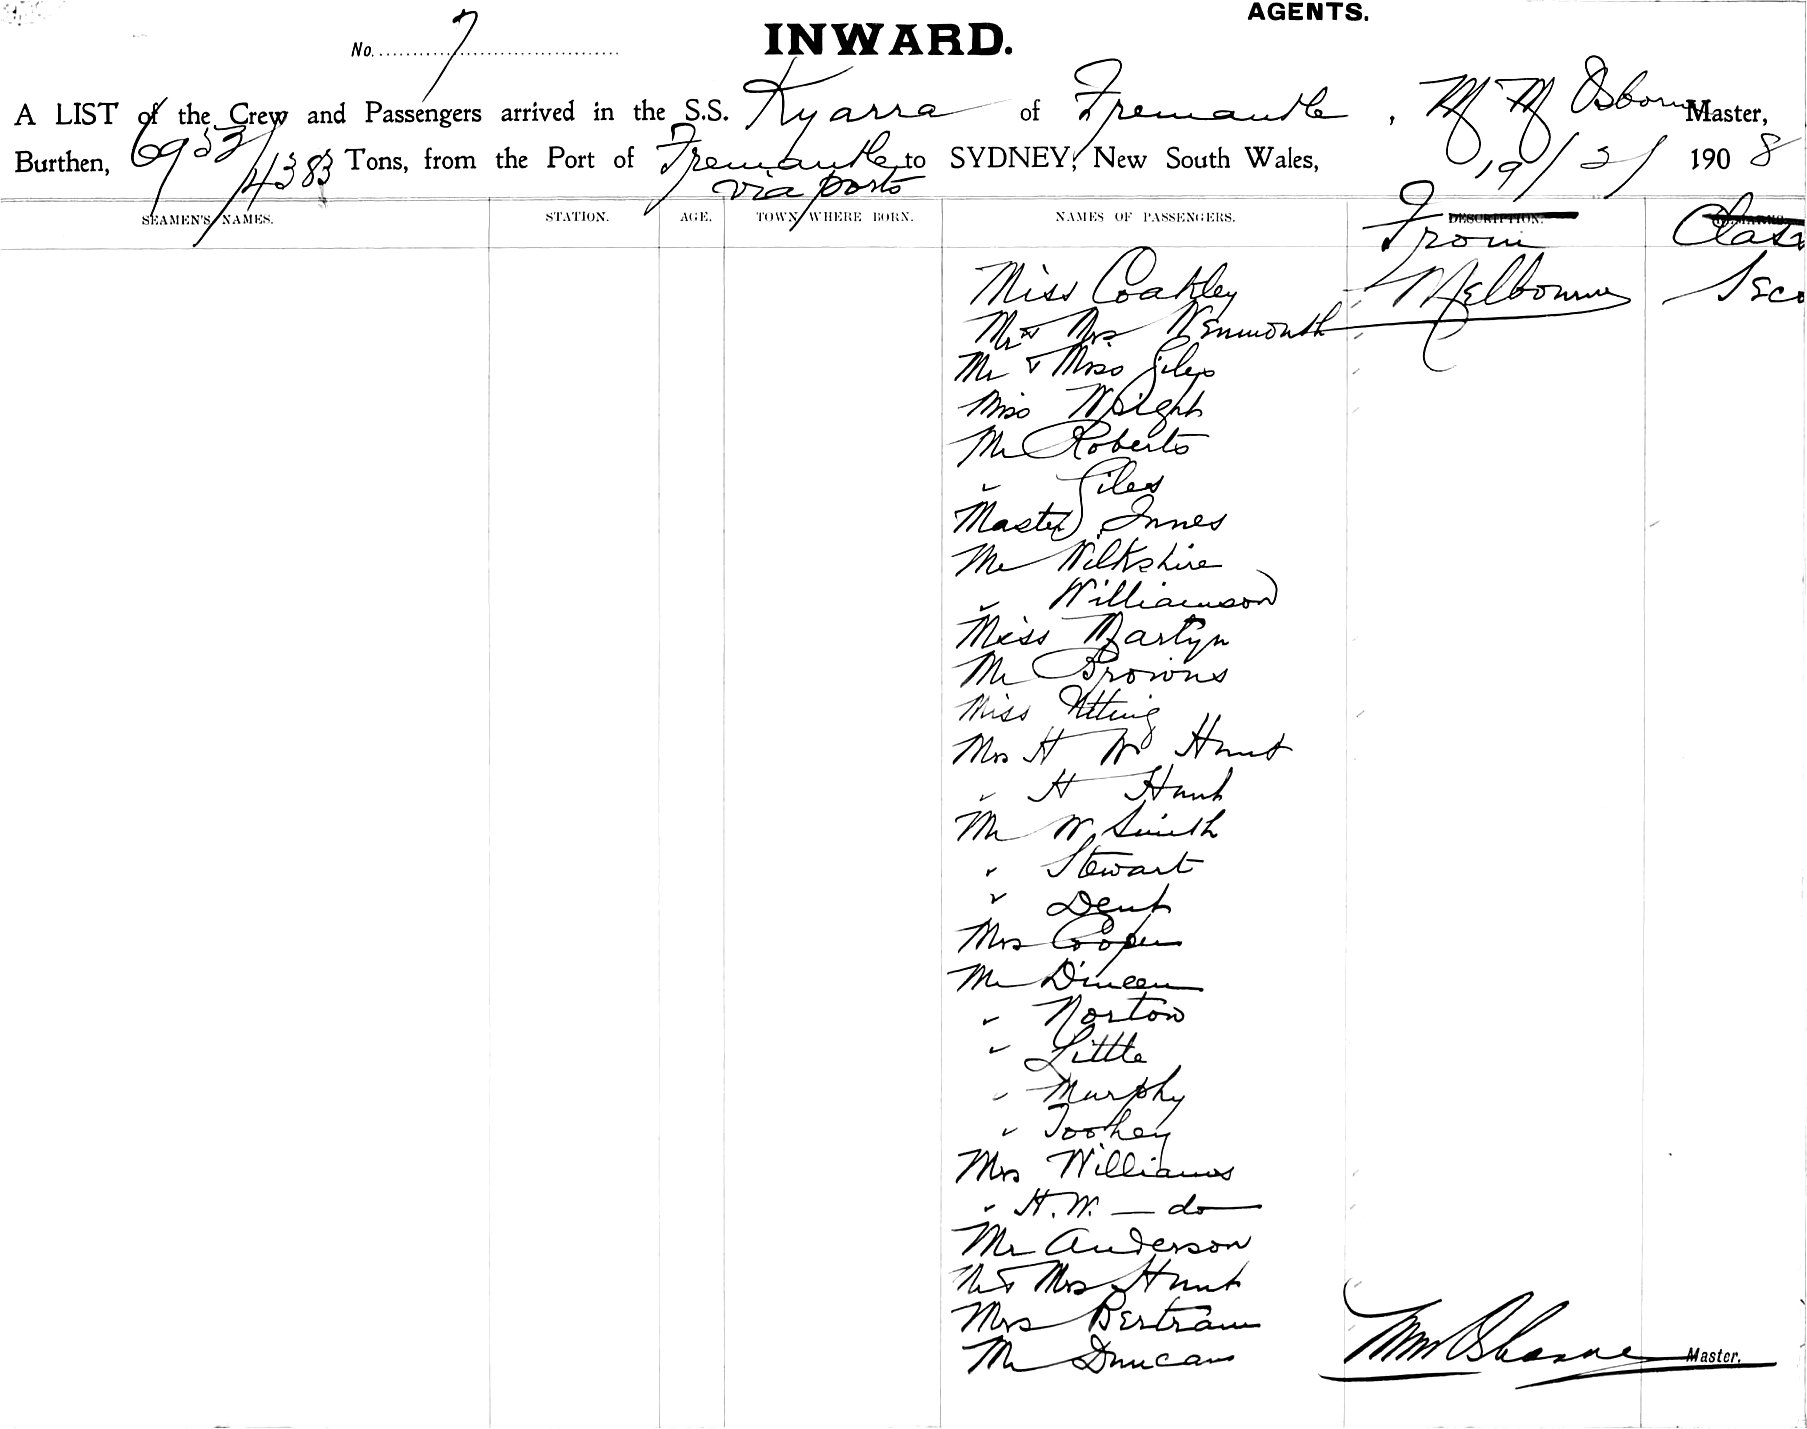 AGENTS.
No. 7
INWARD.
A LIST of the Crew and Passengers arrived in the S.S. Kyarra of Fremantle, Master,
Burthen, 6953/4383 Tons, from the Port of Fremantle to SYDNEY, New South Wales, 19/2/ 1908
via ports
SEAMEN'S NAMES. STATION. AGE. TOWN WHERE BORN. NAMES OF PASSENGERS. DESCRIPTION. From Class
Miss Coakley Melbourne Seco
Mr & Mrs Wenmouth
Mr & Miss Giles
Miss Wright
Mr Roberts
" Giles
Master Innes
Mr Wilkshire
" Williamson
Miss Martyn
Mr Browns
Miss Utting
Mrs H W Hunt
" H Hunt
Mr W Smith
" Stewart
" Dent
Mrs Cooper
Mr
" Norton
" Little
" Murphy
" Toohey
Mrs Williams
" H.W. — do —
Mr Anderson
Mr & Mrs Hunt
Mrs Bertram
Mr Duncan
Master.